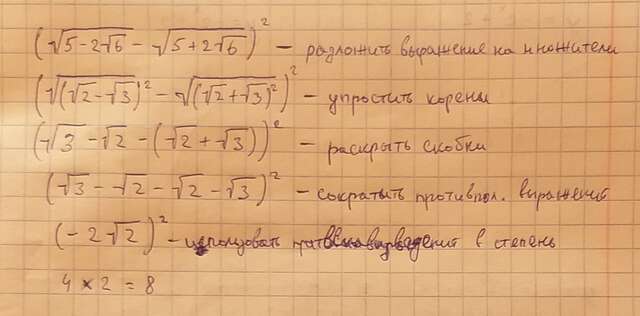 (√5-2√6 - √5+2√6)² - разложить выражение на множители
(√(√2-√3)² - √(√2+√3)²)² - упростить корень
(√3-√2-(√2+√3))² - раскрыть скобки
(√3-√2-√2-√3)² - сократить противпол. выражения
(-2√2)² - использовать возведения в степень
4 × 2 = 8